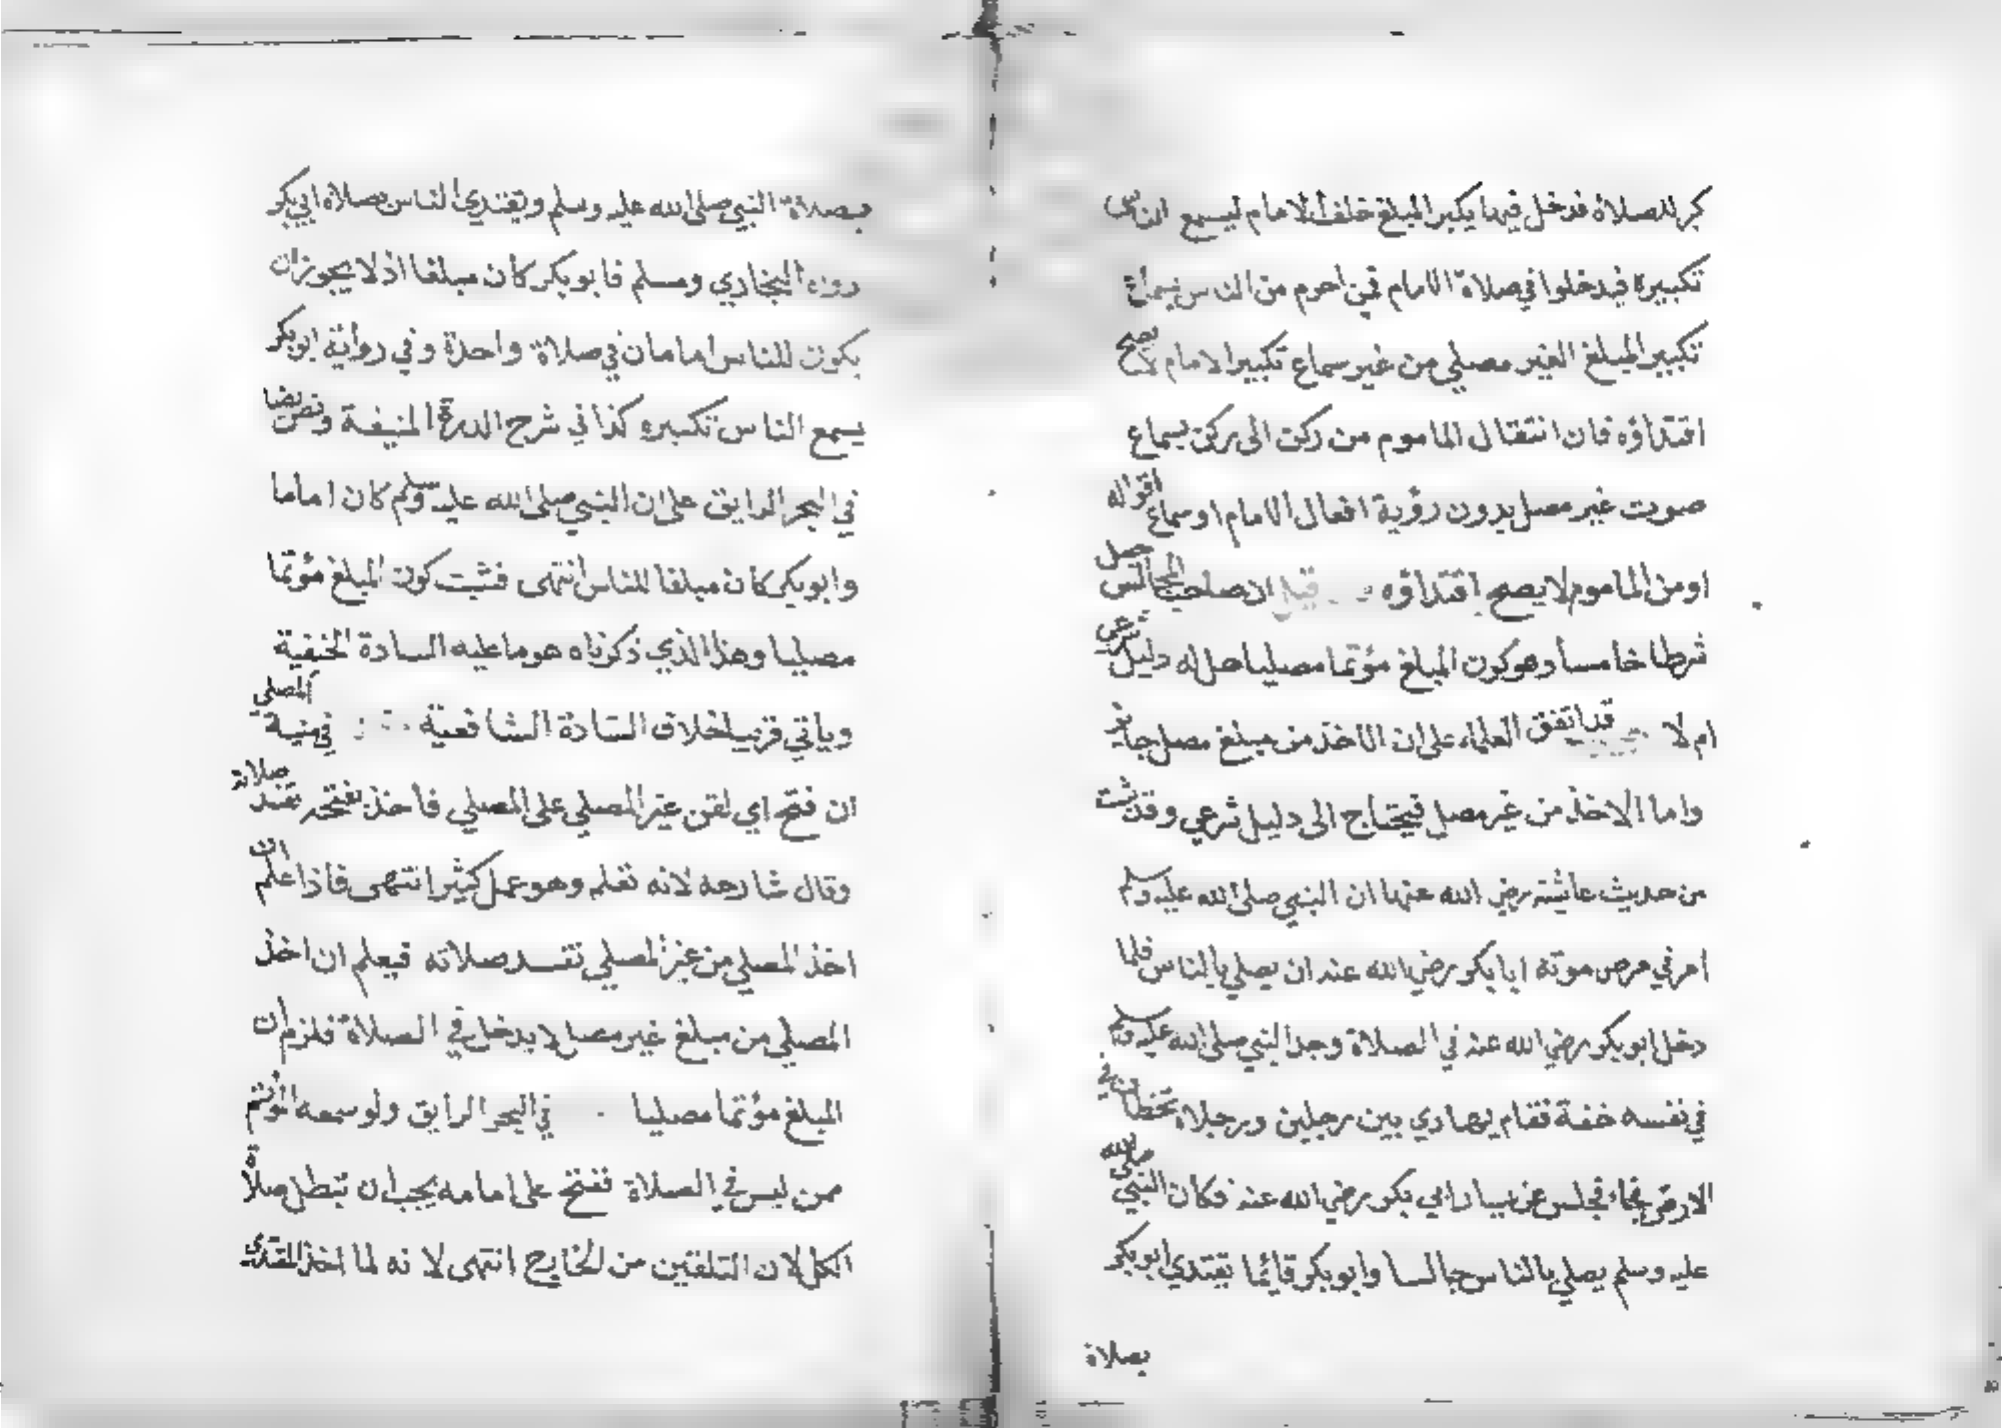 كبر للصلاة فدخل فيها يكبر المبلغ خلف الامام ليسمع الناس
تكبيره فيدخلوا في صلاة الامام فمن احرم من الناس بسماع
تكبير المبلغ الغير مصلي من غير سماع تكبير الامام لا يصح
اقتداؤه فان انتقال الماموم من ركن الى ركن بسماع
صوت غير مصل بدون رؤية افعال الامام او سماع اقواله
او من الماموم لا يصح اقتداؤه قيل ان صاحب المجالس جعل
شرطا خامسا وهو كون المبلغ مؤتما مصليا هل له دليل شرعي
ام لا قد اتفق العلماء على ان الاخذ من مبلغ مصل جايز
واما الاخذ من غير مصل فيحتاج الى دليل شرعي وقد ثبت
من حديث عائشة رضي الله عنها ان النبي صلى الله عليه وسلم
امر في مرض موته ابا بكر رضي الله عنه ان يصلي بالناس فلما
دخل ابو بكر رضي الله عنه في الصلاة وجد النبي صلى الله عليه وسلم
في نفسه خفة فقام يهادي بين رجلين ورجلاه تخطان في
الارض فجاء فجلس عن يسار ابي بكر رضي الله عنه فكان النبي صلى الله
عليه وسلم يصلي بالناس جالسا وابو بكر قائما يقتدي ابو بكر
بصلاة
بصلاة النبي صلى الله عليه وسلم ويقتدي الناس بصلاة ابي بكر
رواه البخاري ومسلم فابو بكر كان مبلغا اذ لا يجوز ان
يكون للناس امامان في صلاة واحدة وفي رواية ابو بكر
يسمع الناس تكبيره كذا في شرح الدرة المنيفة ونص ايضا
في البحر الرايق على ان النبي صلى الله عليه وسلم كان اماما
وابو بكر كان مبلغا للناس انتهى فثبت كون المبلغ مؤتما
مصليا وهذا الذي ذكرناه هو ما عليه السادة الحنفية
وياتي قريبا خلاف السادة الشافعية في منية المصلي
ان فتح اي لقن غير المصلي على المصلي فاخذ بفتحه تفسد صلاته
وقال شارحه لانه تعلم وهو عمل كثير انتهى فاذا علم ان
اخذ المصلي من غير المصلي تفسد صلاته فيعلم ان اخذ
المصلي من مبلغ غير مصل لا يدخل في الصلاة فلزم ان
المبلغ مؤتما مصليا في البحر الرايق ولو سمعه المؤتم
ممن ليس في الصلاة ففتح على امامه يجب ان تبطل صلاة
الكل لان التلقين من الخارج انتهى لانه لما اخذ المقتدي